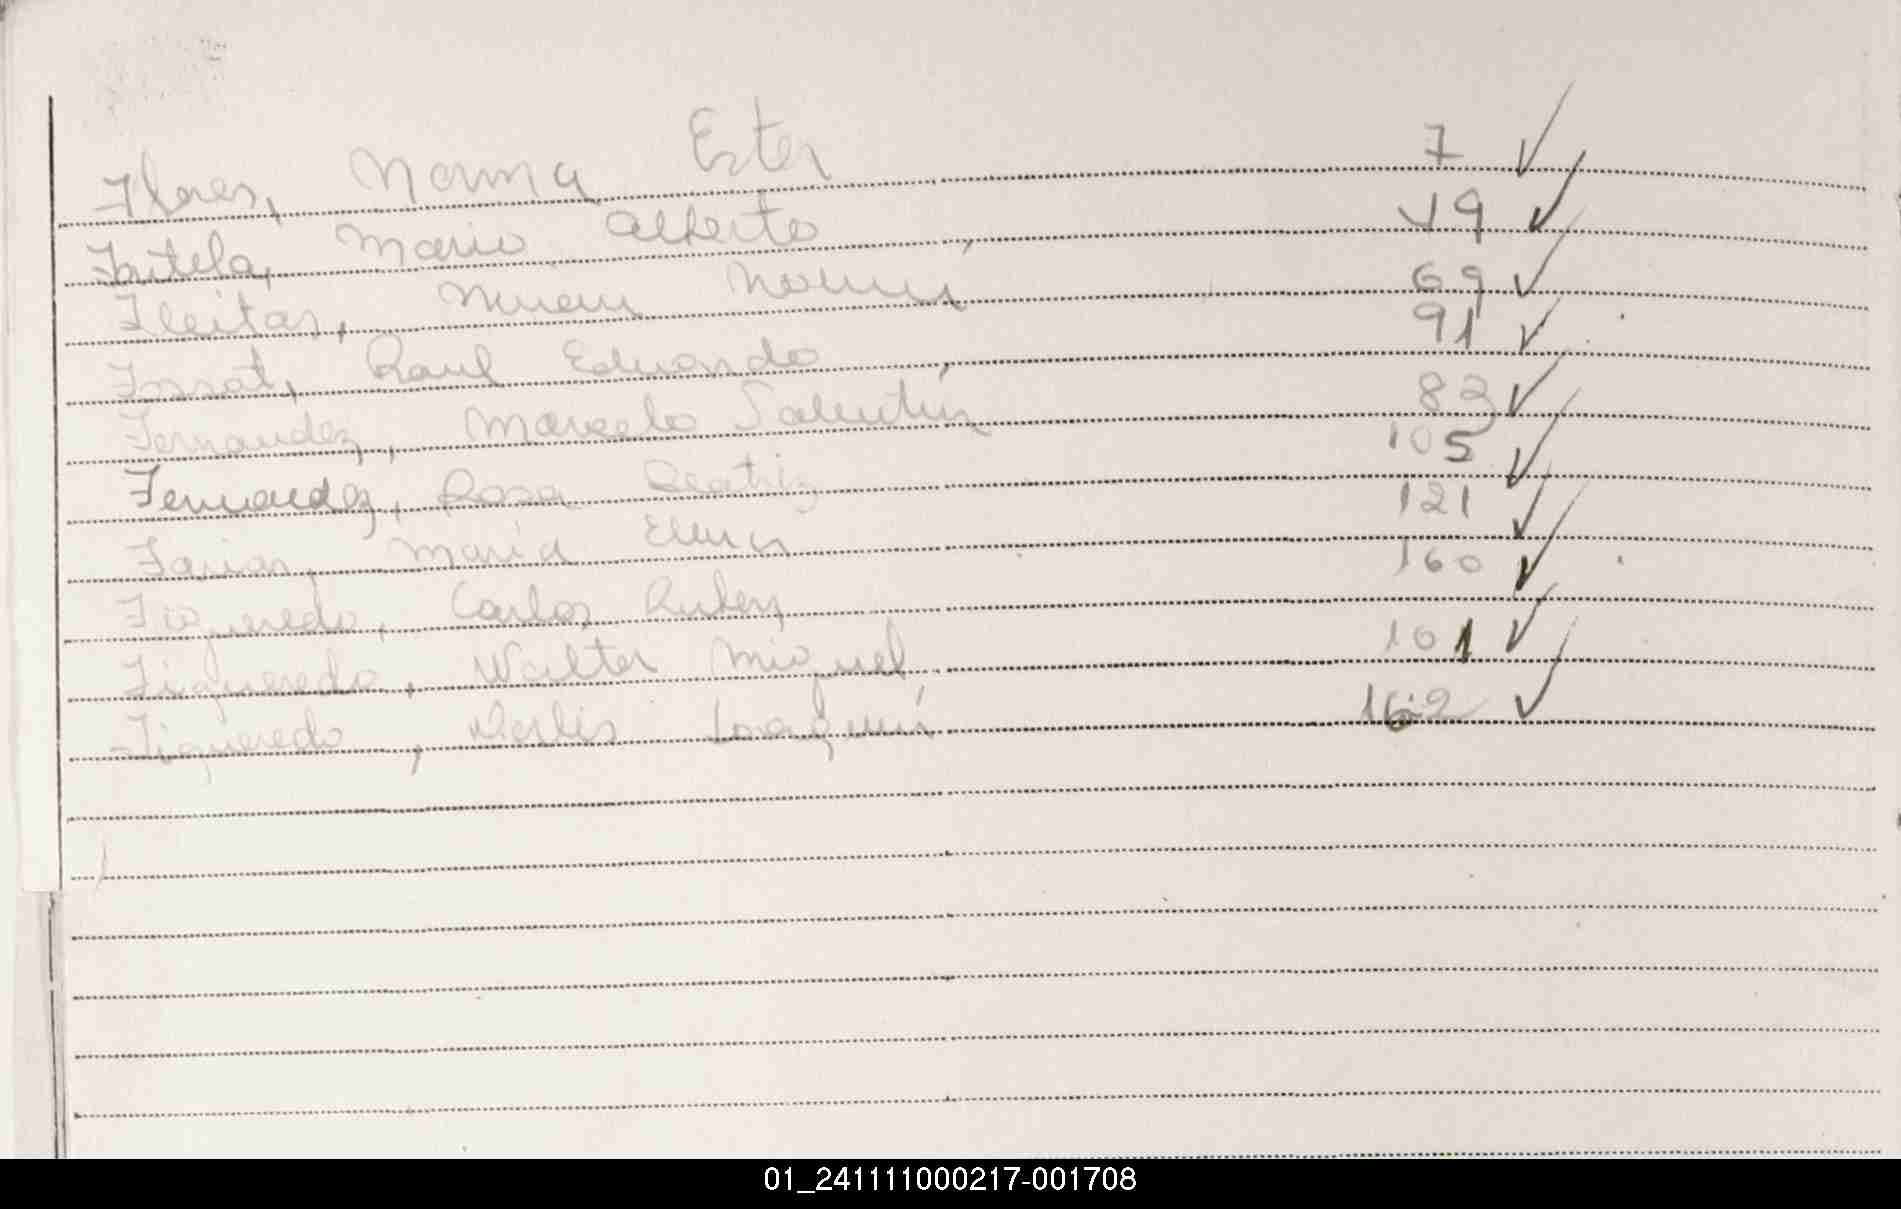 Flores, Norma Ester 7 ✓
Fontela, Mario Alberto 49 ✓
Fleitas, Miriam Noemí 69 ✓
Fossat, Raul Eduardo 91 ✓
Fernandez, Marcelo Valentín 83 ✓
Fernandez, Rosa Beatriz 105 ✓
Farias, María Elena 121 ✓
Figueredo, Carlos Ruben 160 ✓
Figueredo, Walter Miguel 101 ✓
Figueredo, Joaquín 162 ✓
01_241111000217-001708